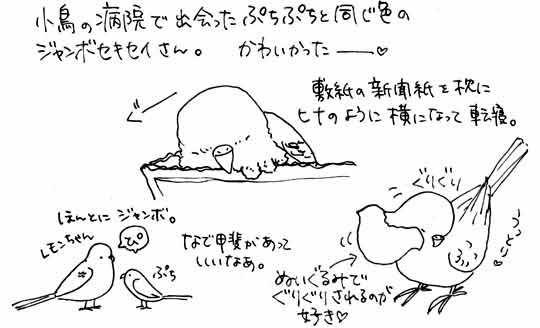 小鳥の病院で出会ったぷちぷちと同じ色の
ジャンボセキセイさん。 かわいかったーー♡
敷紙の新聞紙を枕に
ヒナのように横になって転寝。
ぐ
ぐりぐり
うっとり♡
ほんとにジャンボ。
レモンちゃん
ぴ。
ぷち
なで甲斐があって
いいなあ。
ぬいぐるみで
ぐりぐりされるのが
好き♡